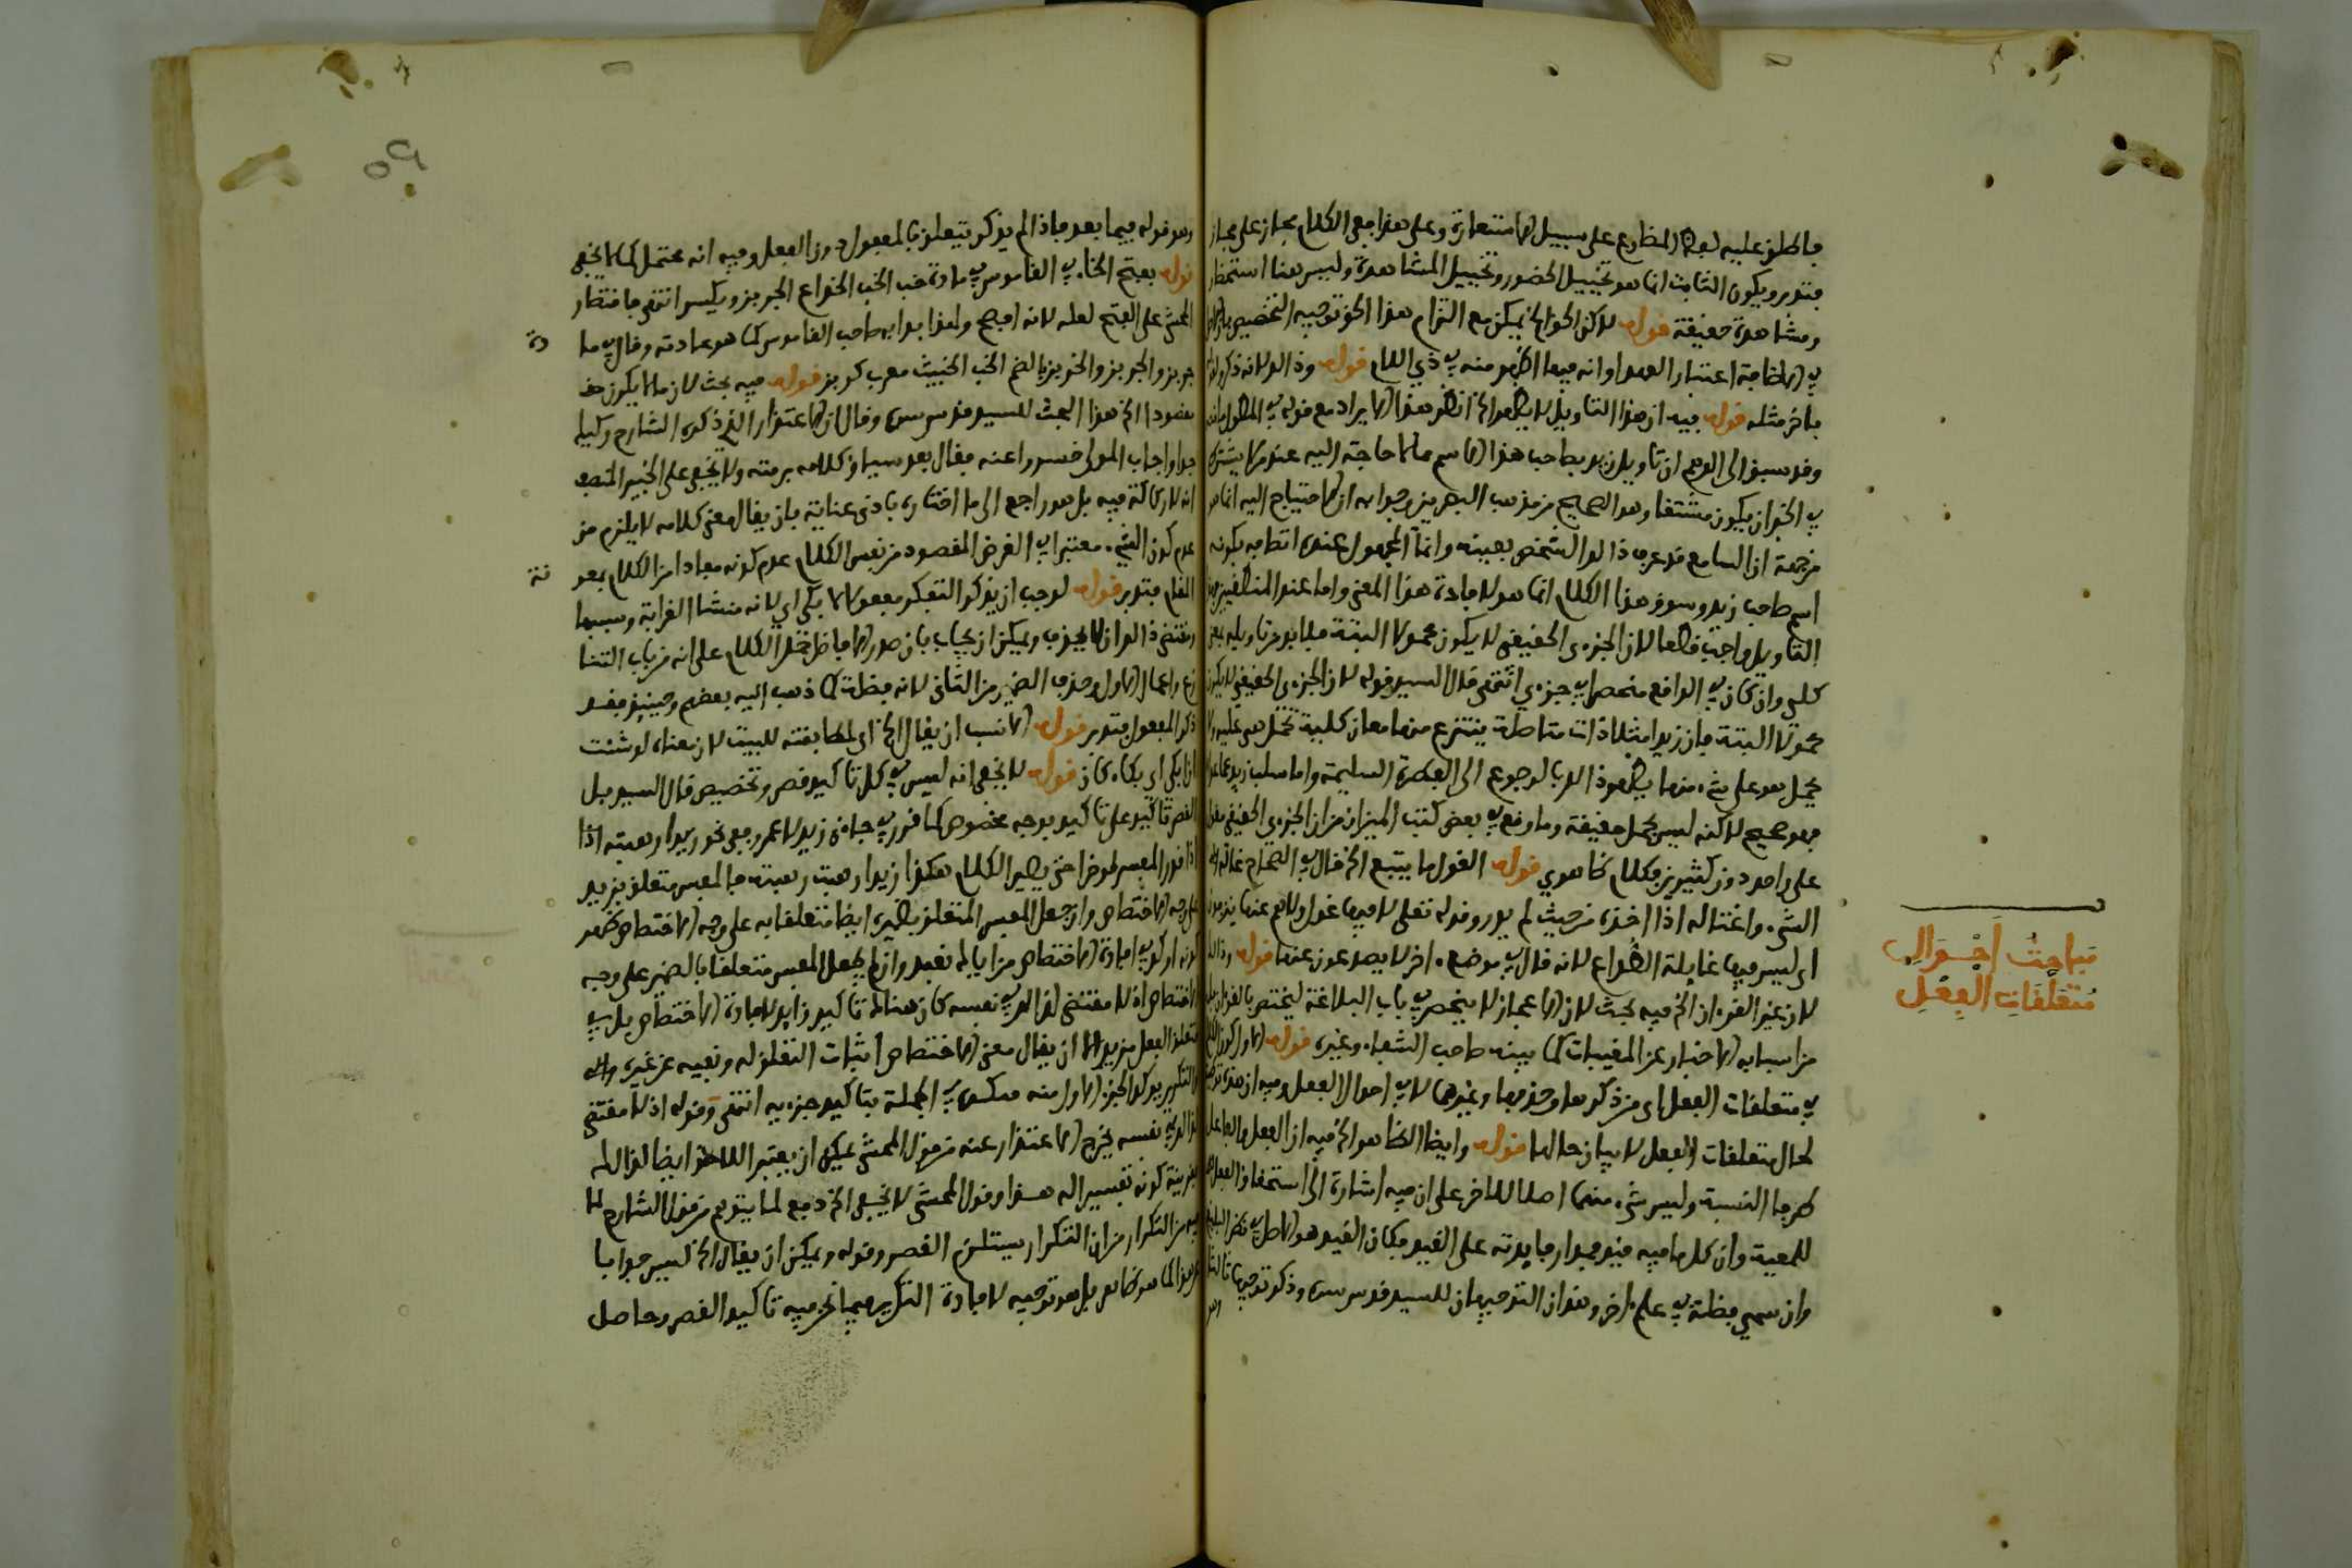 فاطلق عليه لفظ المضارع على سبيل الاستعارة وعلى هذا ففي الكلام مجاز على مجاز
فتدبر ويكون الثابت انما هو تخييل الحضور وتخييل المشاهدة وليس هنا استحضار
ومشاهدة حقيقة قوله لاكن الحق الخ يمكن مع التزام هذا الحق توجيه التخصيص
في الاضافة اعتبار العهد او انه فيها اظهر منه في ذي اللام قوله وذالك لانه ذكر
ما في مثله قوله فيه ان هذا التاويل لا يظهر الخ انظر هذا الايراد مع قوله في المطول
وقد سبق الى الوهم ان تاويل زيد بصاحب هذا الاسم مما لا حاجة اليه عند من لا يشترط
في الخبر ان يكون مشتقا وهو الصحيح من مذهب البصريين وجوابه ان الاحتياج اليه انما هو
من جهة ان السامع قد عرف ذالك الشخص بعينه وانما المجهول عنده اتصافه بكونه
اسم صاحب زيد وسوق هذا الكلام انما هو لافادة هذا المعنى واما عند المنطقيين
التاويل واجب قطعا لان الجزءي الحقيقي لا يكون محمولا البتة فلا بد من تاويله بمعنى
كلي وان كان في الواقع منحصرا في جزءي انتهى قال السيد قوله لان الجزءي الحقيقي لا يكون
محمولا البتة فان زيدا مثلا ذات متاصلة ينتزع منها معان كلية تحمل هي عليه ولا
يحمل هو على شيء منها يظهر ذالك بالرجوع الى الفطرة السليمة واما سلب زيد عما عداه
فهو صحيح لاكنه ليس بحمل حقيقة وما وقع في بعض كتب الميزان من ان الجزءي الحقيقي مقول
على واحد دون كثيرين فكلام ظاهري قوله الغول ما يتبع الخ قال في الصحاح غاله
الشيء واغتاله اذا اخذه من حيث لم يدر وقوله تعلى لا فيها غول ولا هم عنها ينزفون
اي ليس فيها غايلة الصداع لانه قال في موضع ءاخر لا يصدعون عنها قوله وذالك
لان غير القرءان الخ فيه بحث لان الاعجاز لا ينحصر في باب البلاغة ليختص بالقرءان
من اسبابه الاخبار عن المغيبات كما بينه صاحب الشفاء وغيره قوله
في متعلقات الفعل اي من ذكرها وحذفها وغيرهما لا في احوال الفعل وفيه ان هذه
لحال متعلقات الفعل لا بيان حالها قوله وايضا الظاهر الخ فيه ان الفعل والفاعل
طرفا النسبة وليس شيء منهما اصلا للاخر على ان فيه اشارة الى استحقاق الفعل
للمعية وان كلا منهما فيه قيد فمدار فايدته على القيد فكان القيد هو الاصل في نظر البليغ
وان سمي فضلة في علم ءاخر وهذان التوجيهان للسيد قدس سره وذكر توجيها ثالثا
مباحث احوال
متعلقات الفعل
٥٩
وهو قوله فيما بعد فاذا لم يذكر يتعلق بالمفعول دون الفعل وفيه انه محتمل كما لا يخفى
قوله بفتح الخاء في القاموس في مادة خب الخب الخداع الجربز ويكسر انتهى فاقتصار
المحشي على الفتح لعله لانه افصح ولهذا بدا به صاحب القاموس كما هو عادته وقال في ما
دة
جربز والجربز والخربز بالضم الخب الخبيث معرب كربز قوله فيه بحث لان ما لا يكون مقـ
صودا الخ هذا البحث للسيد قدس سره وقال ان الاعتذار الذي ذكره الشارح ركيك
جدا واجاب المولى خسروا عنه فقال بعد سياق كلامه برمته ولا يخفى على الخبير المنصف
انه لا ركاكة فيه بل هو راجع الى ما اختاره بادنى عناية بان يقال معنى كلامه لا يلزم من
عدم كون الشيء معتبرا في الغرض المقصود من نفس الكلام عدم كونه مفادا من الكلام بمعو
نة
المقام فتدبر قوله لوجب ان يذكر التفكر مفعولا لابكي اي لانه منشا الغرابة وسببها
ومقتضى ذالك ان لا يحذف ويمكن ان يجاب بان صور الافاضل حمل الكلام على انه من باب التنا
زع واعمال الاول وحذف الضمير من الثاني لانه فضلة كما ذهب اليه بعضهم وحينئذ فقد
ذكر المفعول فتدبر قوله الانسب ان يقال الخ اي لمطابقته للبيت لان معناه لو شئت
ان ابكي اي بكاء كان قوله لا يخفى انه ليس في كل تاكيد قصر وتخصيص قال السيد بل
القصر تاكيد على تاكيد بوجه مخصوص كما قرر في جاءني زيد لا عمرو ففي نحو زيدا رهبته اذا
اذا قدر المفسر موخرا حتى يصير الكلام هكذا زيدا رهبت رهبته فالمفسر متعلق بزيد
على وجه الاختصاص وان جعل المفسر المتعلق بضميره ايضا متعلقا به على وجه الاختصاص ظهر
كونه اوكد في افادة الاختصاص من اياك نعبد وان لم يجعل المفسر متعلقا بالضمير على وجه
الاختصاص اذ لا مقتضى لذالك في نفسه كان هناك تاكيد زايد لافادة الاختصاص بل في
تعلق الفعل بزيد الا ان يقال معنى الاختصاص اثبات التعلق له ونفيه عن غيره
والتكرير يوكد الجزء الاول منه فـ في الجملة بتاكيد جزءيه انتهى وقوله اذ لا مقتضى
لذالك في نفسه يخرج الاعتذار عنه من قول المحشي يمكن ان يعتبر اللاحق ايضا لذالك
بقرينة كونه تفسيرا له هذا وقول المحشي لا يخفى الخ دفع لما يتوهم من قول الشارح لما
فيه من التكرار من ان التكرار يستلزم القصر وقوله ويمكن ان يقال الخ ليس جوابا
عن هذا كما هو ظاهر بل هو توجيه لافادة التكرير فيما نحن فيه تاكيد القصر وحاصل